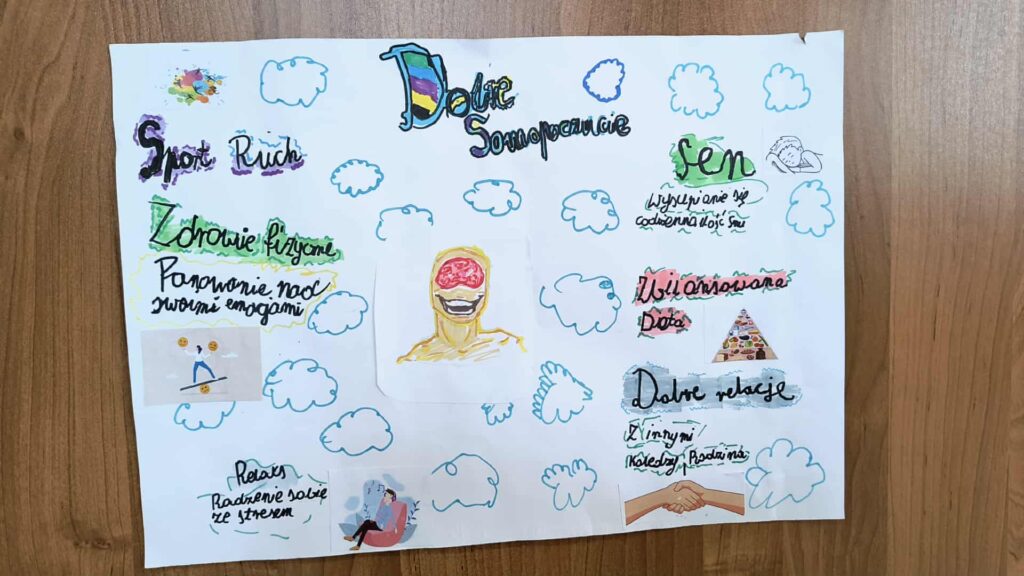 Dobre
Samopoczucie
Sport Ruch
Zdrowie fizyczne
Panowanie nad
swoimi emocjami
Relaks
Radzenie sobie
ze stresem
Sen
Wysypianie się
codzienna ilość śni
Zbilansowana
Dieta
Dobre relacje
Z innymi
Koledzy, Rodzina